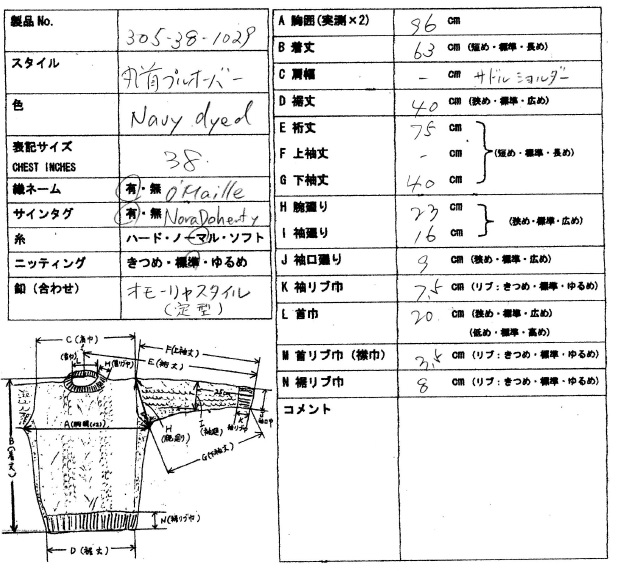 製品No.
305-38-1029
スタイル
丸首プルオーバー
色
Navy dyed
表記サイズ
CHEST INCHES
38.
織ネーム
有・無 O'Maille
サインタグ
有・無 Nora Doherty
糸
ハード・ノーマル・ソフト
ニッティング
きつめ・標準・ゆるめ
釦 (合わせ)
オモーリャスタイル
(定型)
A 胸囲(実測×2) 96 cm
B 着丈 63 cm (短め・標準・長め)
C 肩幅 - cm サドルショルダー
D 裾丈 40 cm (狭め・標準・広め)
E 裄丈 75 cm
F 上袖丈 - cm (短め・標準・長め)
G 下袖丈 40 cm
H 腕廻り 23 cm
I 袖廻り 16 cm (狭め・標準・広め)
J 袖口廻り 9 cm (狭め・標準・広め)
K 袖リブ巾 7.5 cm (リブ:きつめ・標準・ゆるめ)
L 首巾 20 cm (狭め・標準・広め)
(低め・標準・高め)
M 首リブ巾 (襟巾) 3.5 cm (リブ:きつめ・標準・ゆるめ)
N 裾リブ巾 8 cm (リブ:きつめ・標準・ゆるめ)
コメント
C (肩巾)
F(上袖丈)
E (裄丈)
L
(首巾)
M(首リブ巾)
A(胸囲(×2)
B(着丈)
H
(腕廻り)
I
(袖廻)
K
袖リブ巾
J
G(下袖丈)
N(裾リブ巾)
D (裾丈)